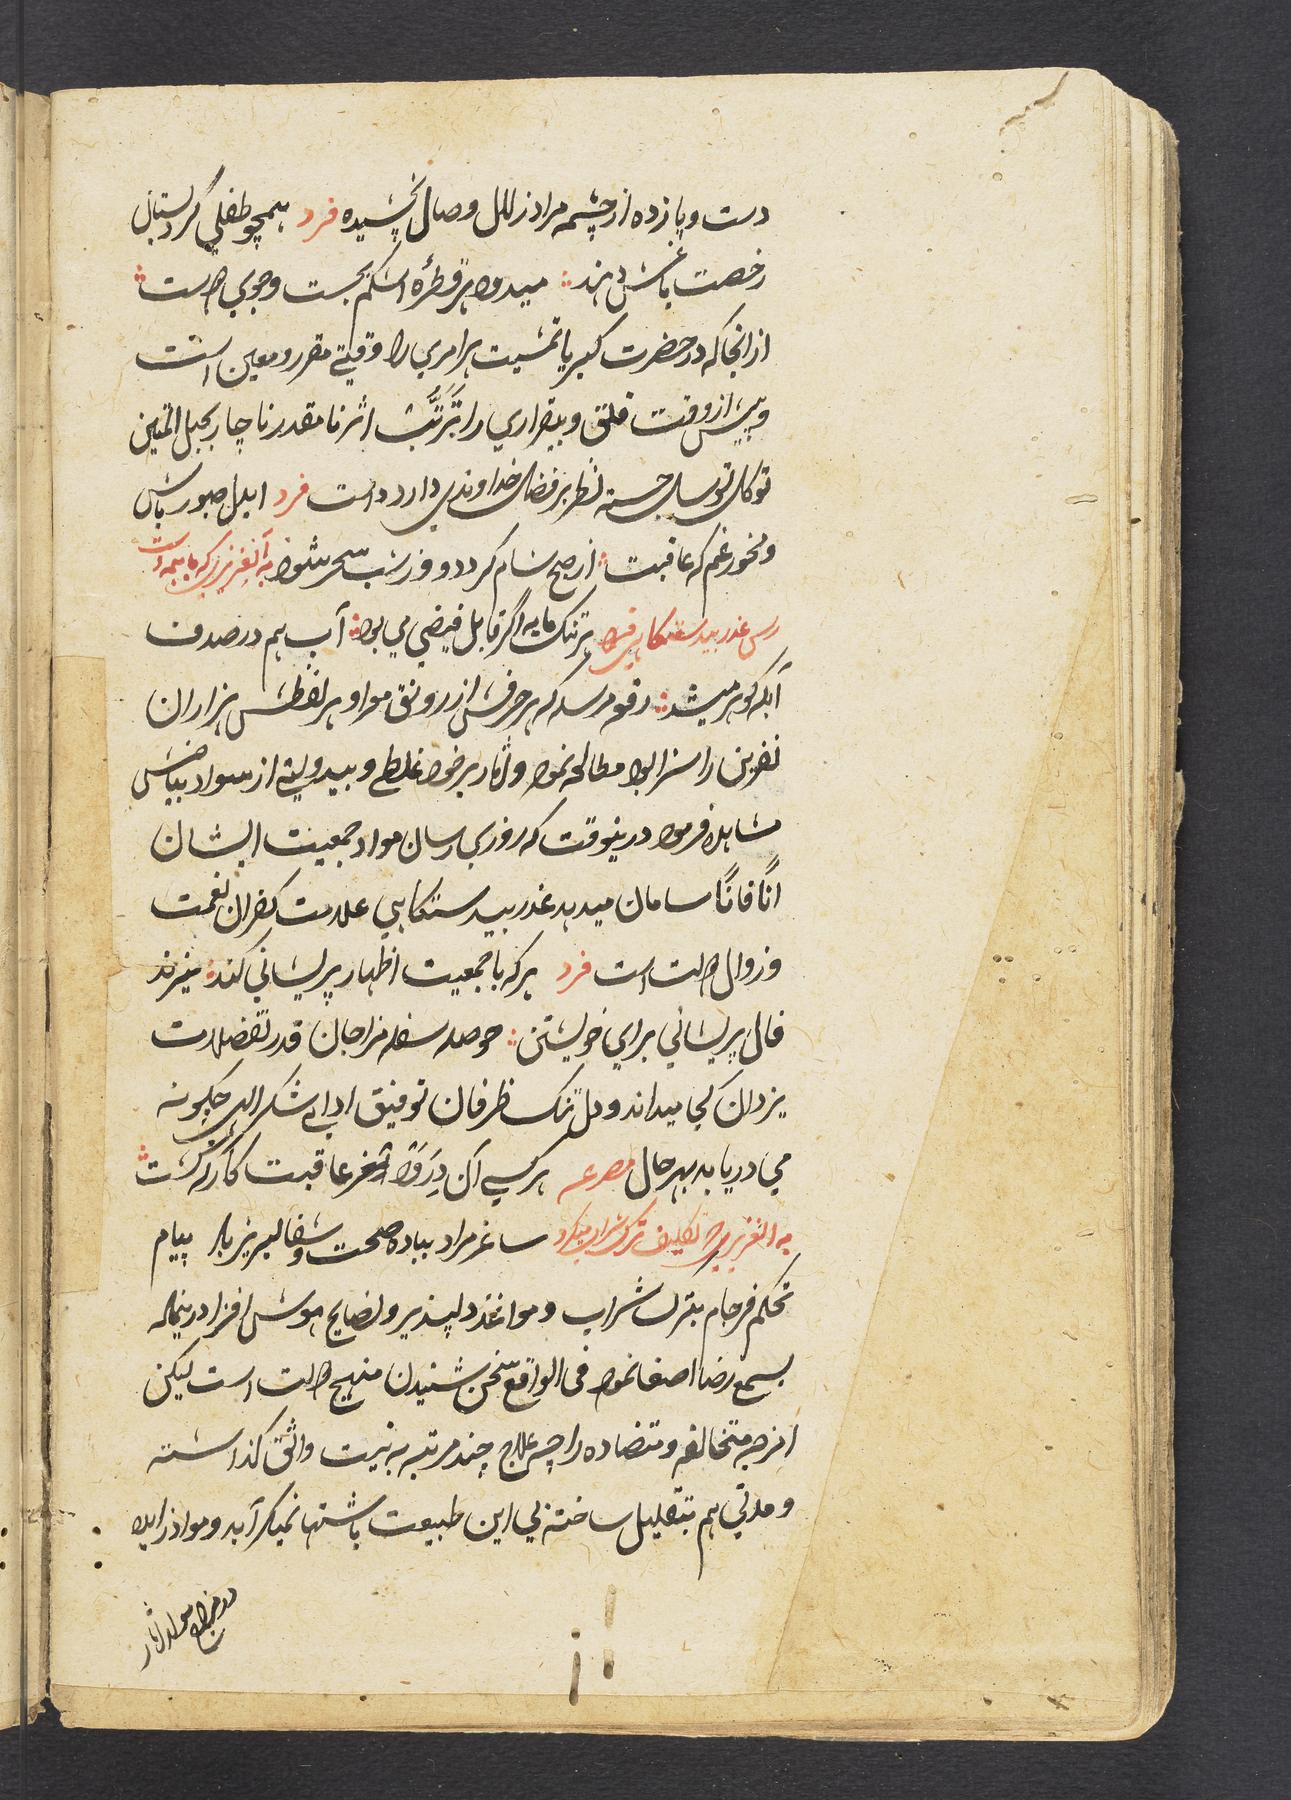 دست و پا زده از چشمه مراد زلال وصال نچشیده فرد همچو طفلی کز دبستان
رخصت باغش دهند میدود هر قطرهٔ اشکم بجست وجوی
از انجا که در حضرت کبریا تمشیت هر امری را وقتی مقرر و معین است
و پیش از وقت قلق و بیقراری را تَرَتُّب اثر نا مقدر ناچار بحبل المتین
توکل توسل جسته نظر بر فضل خداوندی دارد فرد ایدل صبور باش
و مخور غم که عاقبت از صبح شام کردد و وز شب سحر شود به آنعزیزیکه با همه
رس عذر بیدستکاهی هر تنک مایه اگر قابل فیضی می بود آب هم در صدف
آبله کوهر میشد رقوم مرسله که هر حرفش از رونق معرا و هر لفظش هزاران
نفرین را سزا بود مطالعه نموده و آثار برخود غلطی و بیدولتی از سواد بیاضش
مشاهده فرمود درینوقت که روزی رسان مواد جمعیت ایشان
اناً فاناً سامان میدهد عذر بیدستکاهی علامت کفران نعمت
و زوال است فرد هرکه با جمعیت اظهار پریشانی کند میزند
فال پریشانی برای خویشتن حوصله سفله مزاجان قدر تفضلات
یزدان کجا میداند و دل تنک ظرفان توفیق ادای شکر الهی چکونه
می دریابد بهر حال مصرعه هر کسی آن دِرَوَد عاقبت کار که کشت
به انعزیزی که تکلیف ترک شراب میکرد ساغر مراد بباده صحت و شفا لبریز باد پیام
تحکم فرجام بترک شراب و مواعظ دلپذیر و نصایح هوش افزا درینماله
بسمع رضا اصغا نموده فی الواقع سخن شنیدن منهج است لیکن
امزجه متخالفه و متضاده را چه علاج چند مرتبه به نیت واثق کذاشته
و مدتی هم بتقلیل ساخته لی این طبیعت باشتها نمیکراید و مواد زایده